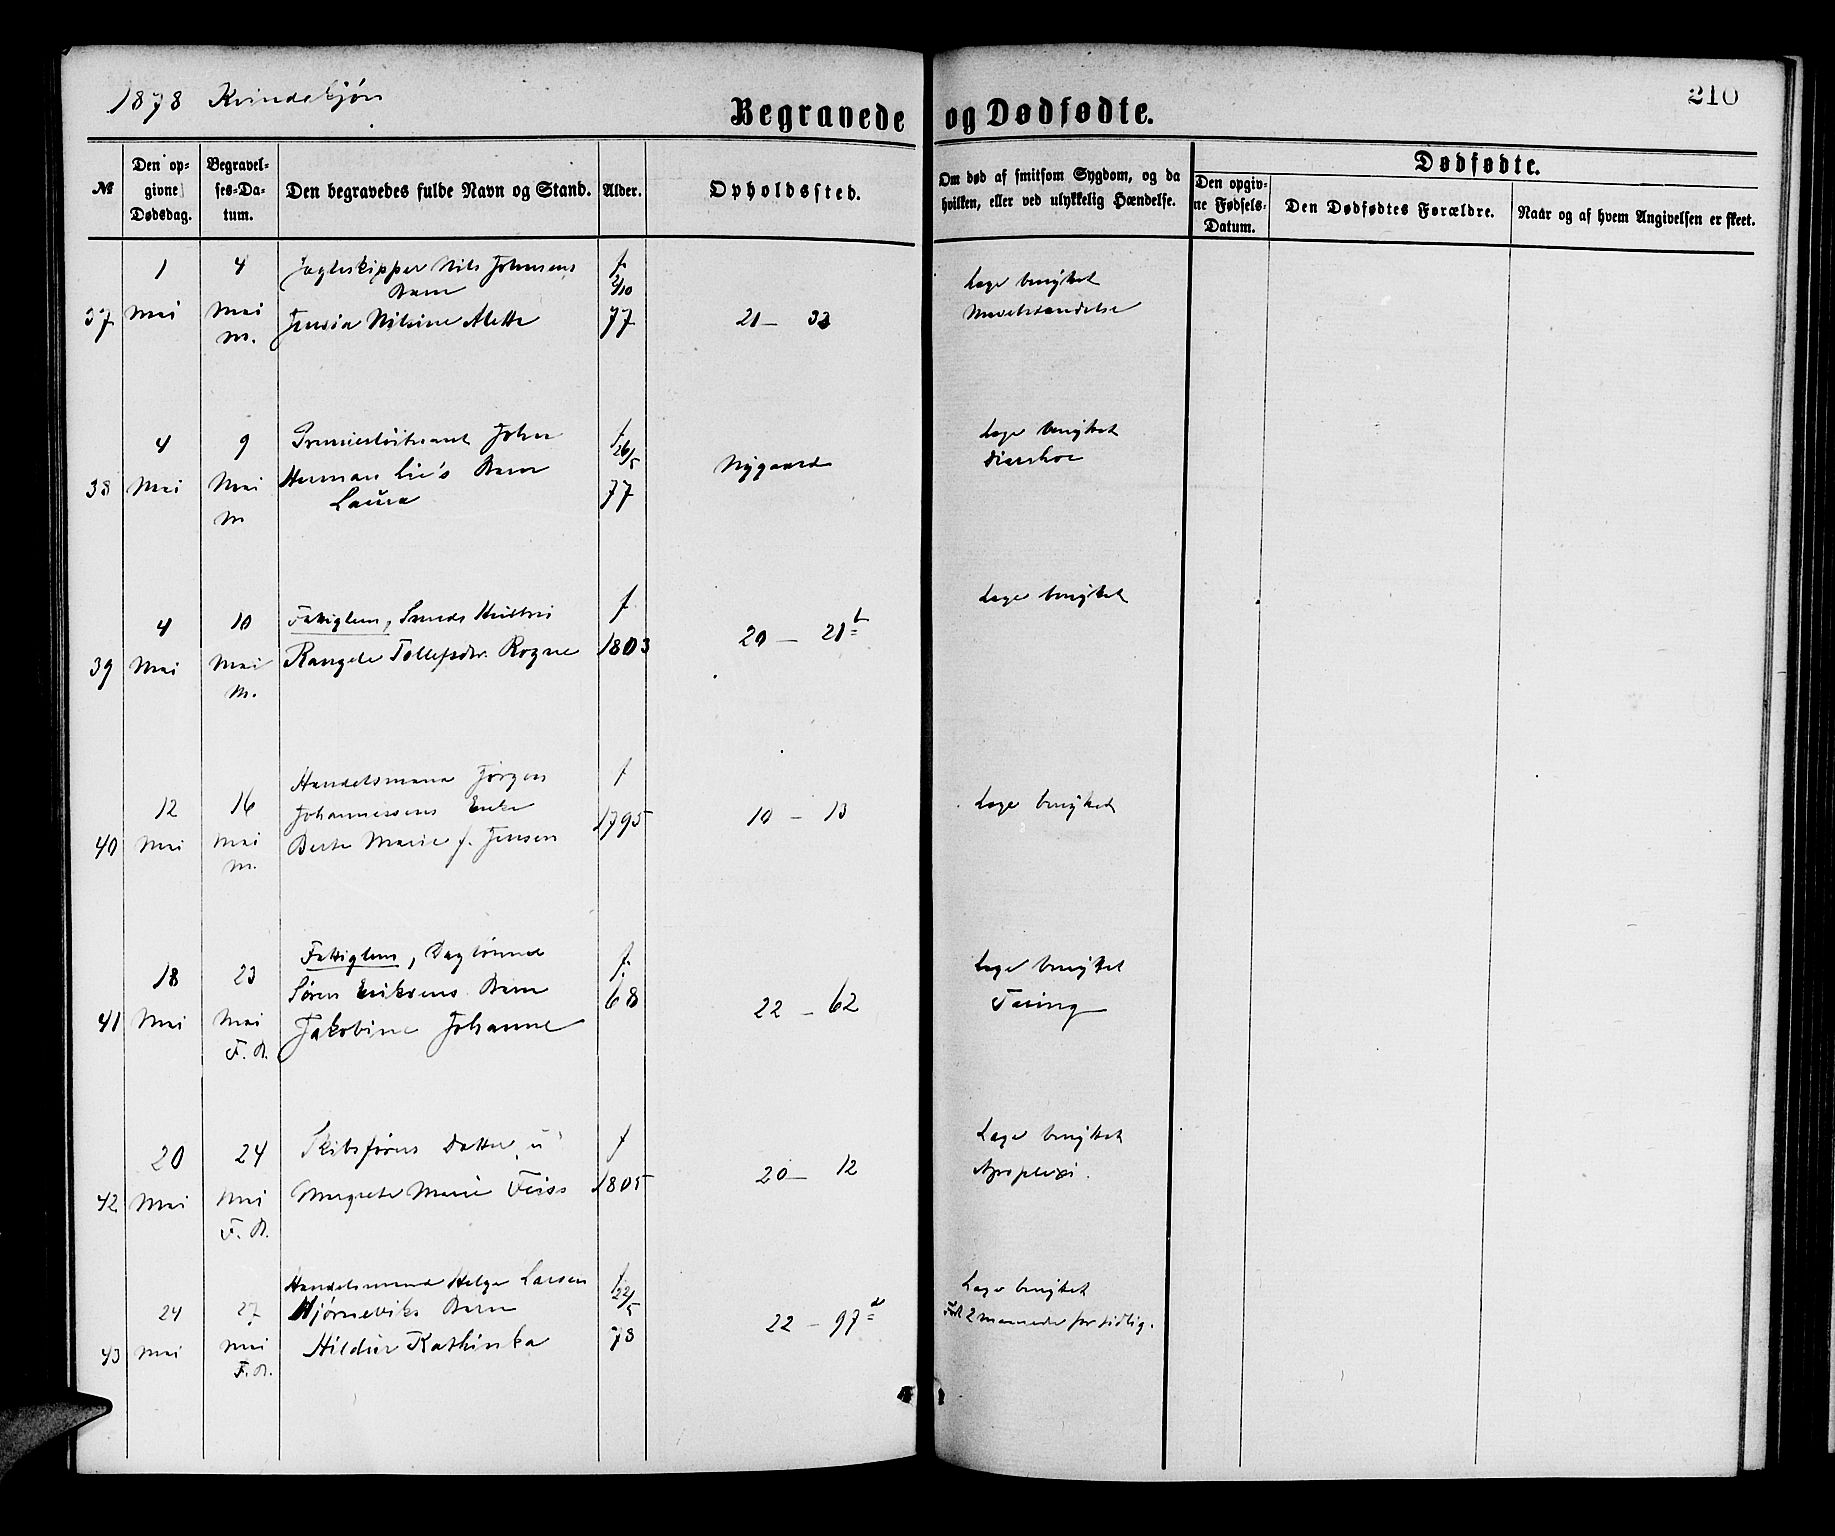 1878 Kvindekjøn
210
Begravede og Dødfødte.
№
Den opgivne Dødsdag.
Begravelses-Datum.
Den begravedes fulde Navn og Stand.
Alder.
Opholdssted.
Om død af smitsom Sygdom, og da hvilken, eller ved ulykkelig Hændelse.
Dødfødte.
Den opgivne Fødsels-Datum.
Den Dødfødtes Forældre.
Naar og af hvem Angivelsen er skeet.
1 4 Jagteskipper Nils Johnsens f.
Barn 2/10 Læge benyttet
37 Mai Mai Jensia Nilsine Alette 77 21 – 32
m.
4 9 Premierløitnant John f. Læge benyttet
Herman Lie's Barn 26/5 Nygaard Diarrhoe
38 Mai Mai Laura 77
m
4 10 Fattiglem, Smeds Hustru f Læge benyttet
39 Mai Mai Rangele Tollefsdtr. Rogne 1803 20 – 21 b
m.
Handelsmand Jørgen f
12 16 Johannessens Enke 10 – 13 Læge benyttet
40 Mai Mai Berte Marie f. Jensen 1795
m.
Fattiglem, Daglønnet f. Læge benyttet
18 23 Søren Eriksens Barn 68 22 – 62 Tæring
41 Mai Mai Jakobine Johanne
F. A.
20 24 Skibsførers Datter, u f Læge benyttet
42 Mai Mai Margrete Marie Feiss 1805 20 – 12 Apoplexi.
F. A.
Handelsmand Helge Larsen f Læge benyttet
24 27 Hjørneviks Barn 22/5 22 – 97 d Født 2 Maaneder for tidlig.
43 Mai Mai Hildur Kathinka 78
F. A.